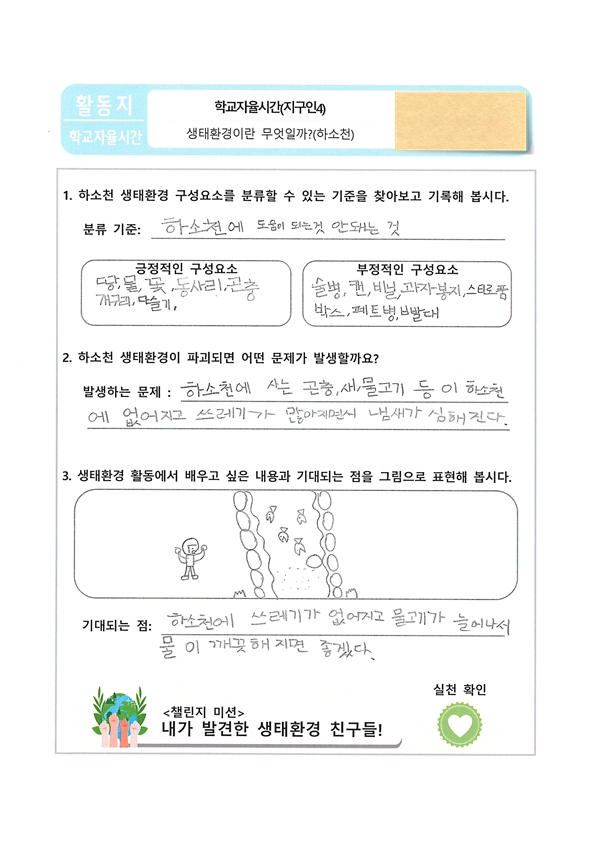 활동지
학교자율시간
학교자율시간(지구인4)
생태환경이란 무엇일까?(하소천)
1. 하소천 생태환경 구성요소를 분류할 수 있는 기준을 찾아보고 기록해 봅시다.
분류 기준: 하소천에 도움이 되는것 안돼는 것
긍정적인 구성요소
땅,물,꽃,동사리,곤충
개구리,다슬기,
부정적인 구성요소
술병,캔,비닐,과자봉지,스티로폼
박스,페트병,빨대
2. 하소천 생태환경이 파괴되면 어떤 문제가 발생할까요?
발생하는 문제 : 하소천에 사는 곤충,새,물고기 등 이 하소천
에 없어지고 쓰레기가 많아지면서 냄새가 심해진다.
3. 생태환경 활동에서 배우고 싶은 내용과 기대되는 점을 그림으로 표현해 봅시다.
기대되는 점: 하소천에 쓰레기가 없어지고 물고기가 늘어나서
물이 깨끗해지면 좋겠다.
실천 확인
<챌린지 미션>
내가 발견한 생태환경 친구들!